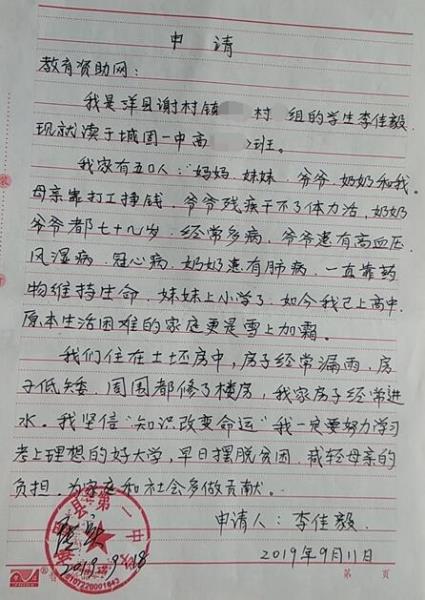 申 请
教育资助网：
我是洋县谢村镇 村 组的学生李佳毅.
现就读于城固一中高 班。
我家有五口人：妈妈、妹妹、爷爷、奶奶和我。
母亲靠打工挣钱，爷爷残疾干不了体力活，奶奶
爷爷都七十几岁，经常多病，爷爷患有高血压.
风湿病、冠心病，奶奶患有肺病，一直靠药
物维持生命，妹妹上小学了，如今我已上高中.
原本生活困难的家庭更是雪上加霜。
我们住在土坯房中，房子经常漏雨，房
子低矮，周围都修了楼房，我家房子经常进
水。我坚信“知识改变命运”我一定要努力学习
考上理想的好大学，早日摆脱贫困，减轻母亲的
负担，为家庭和社会多做贡献。
申请人：李佳毅.
2019年9月11日
县第一中
2019.9.18
6107220001843
第 页